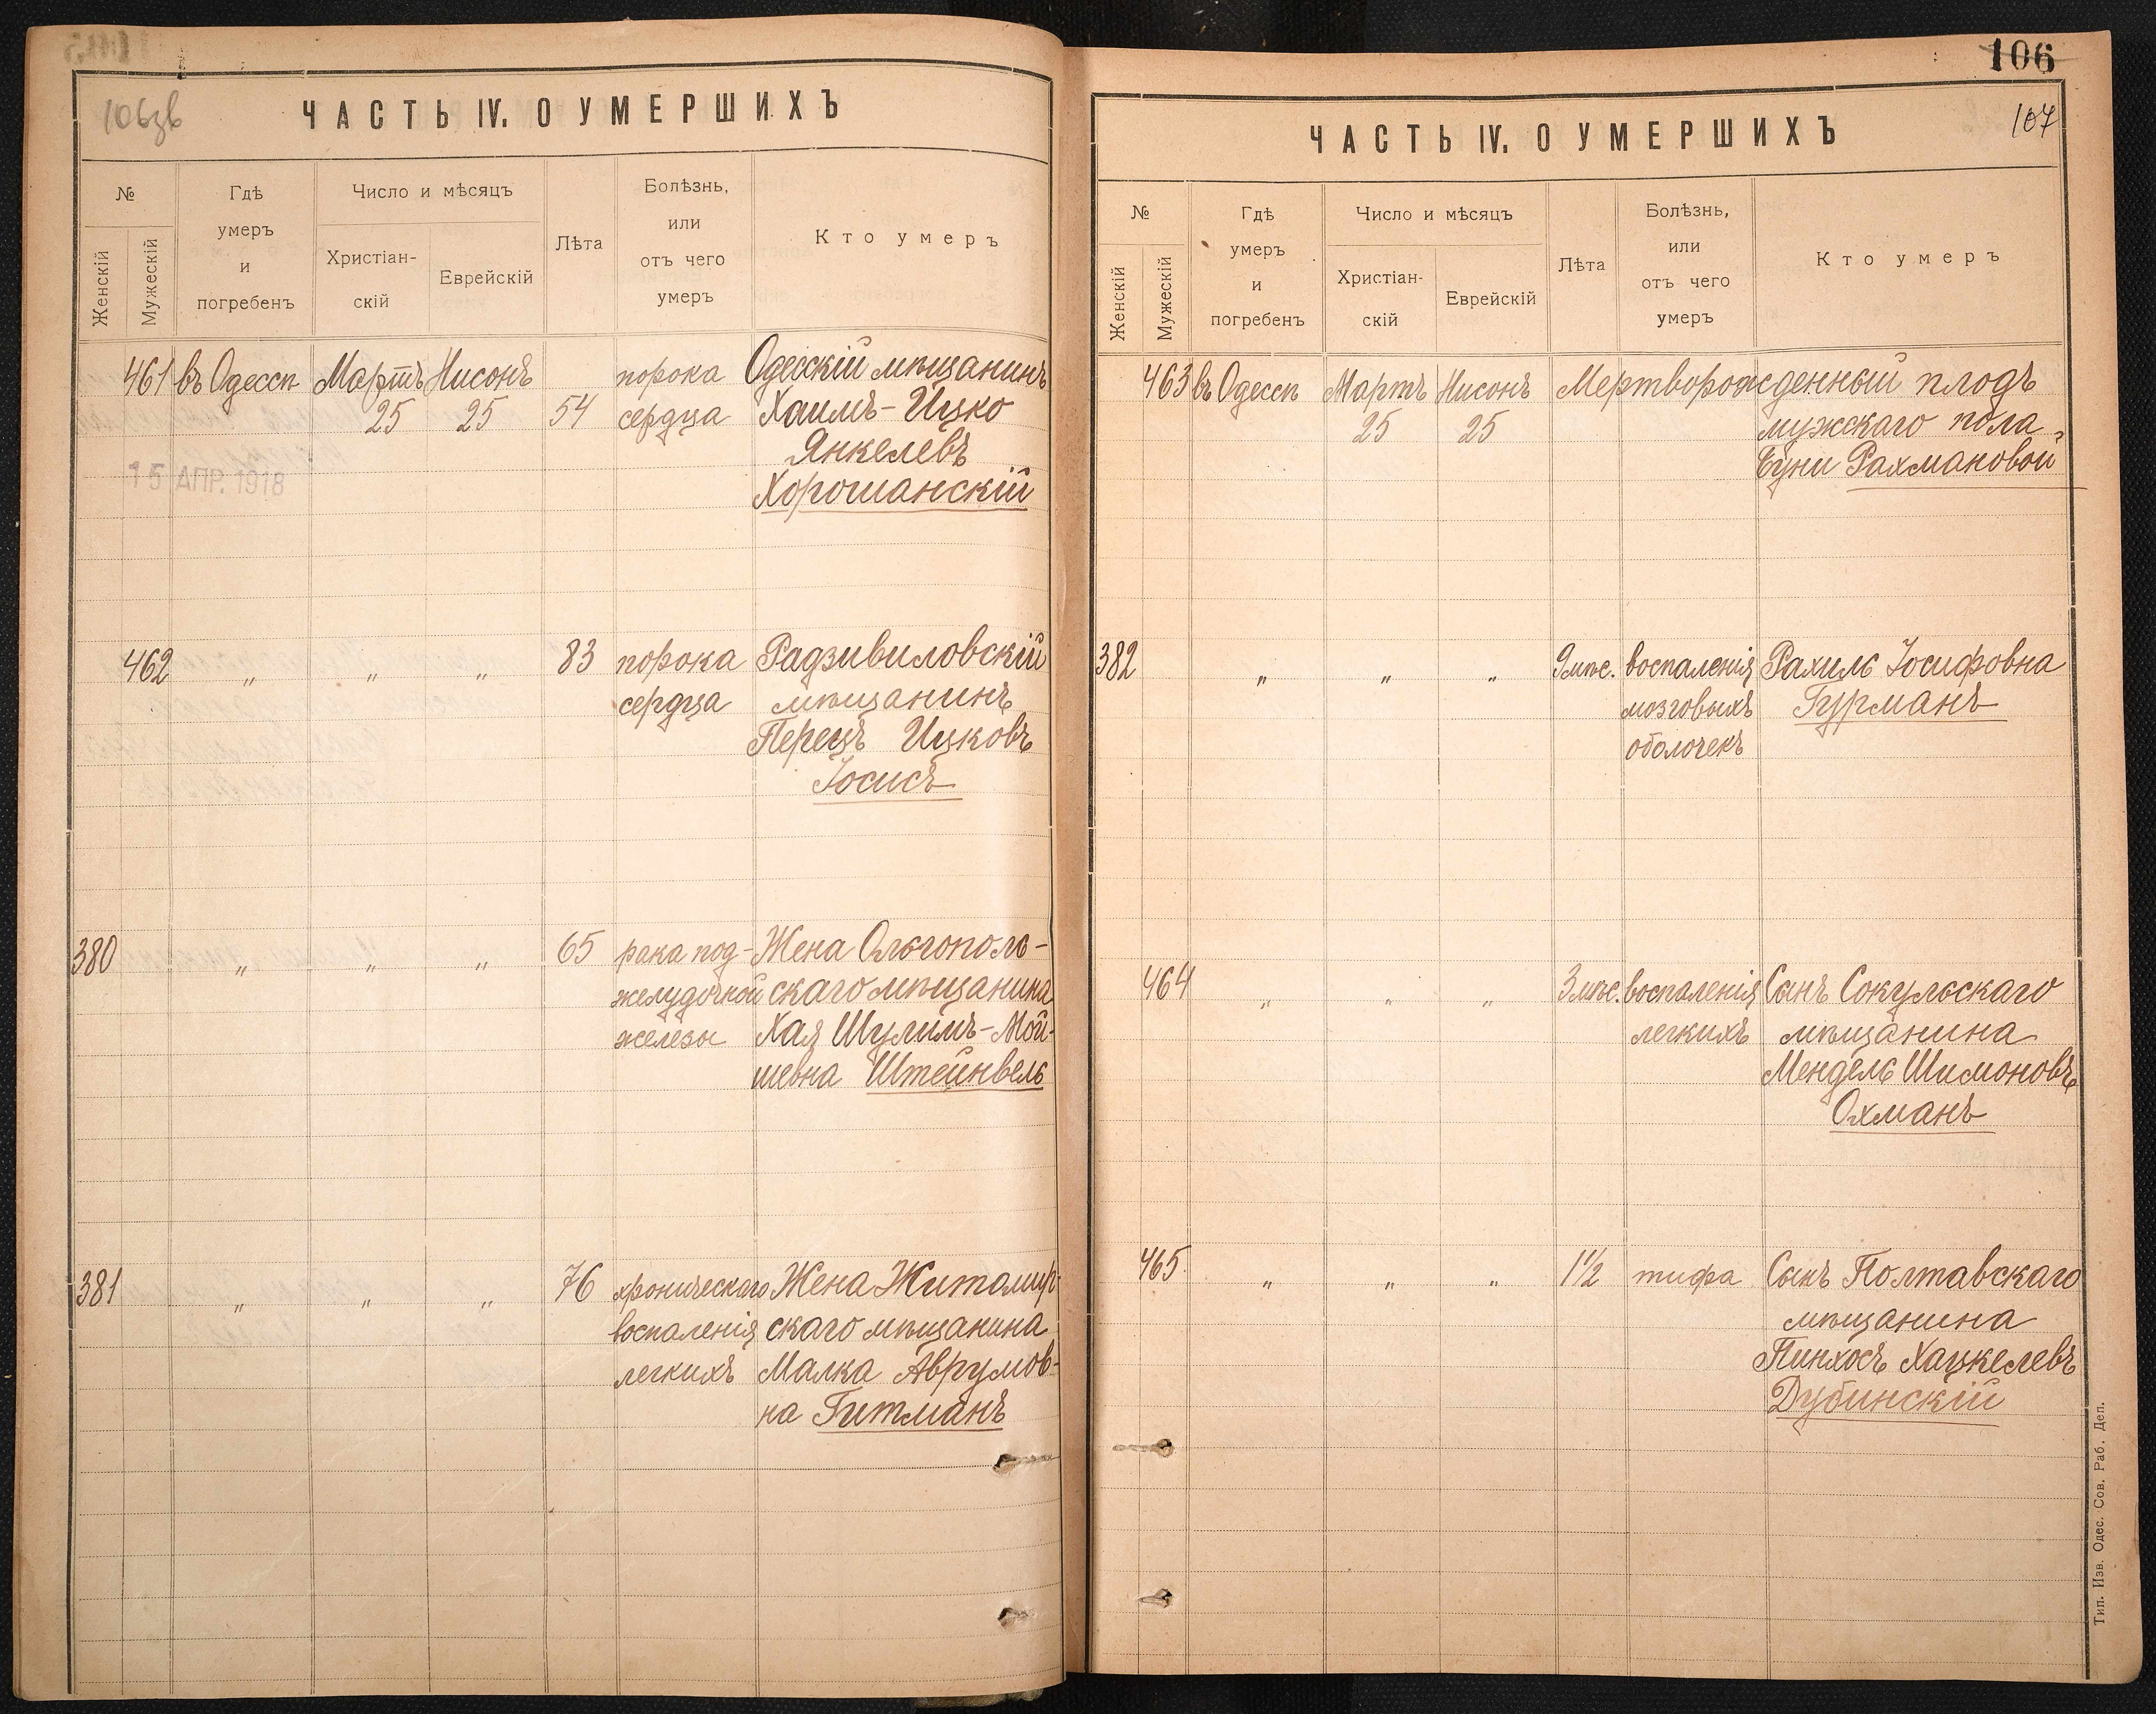 106зв
ЧАСТЬ IV. О УМЕРШИХЪ
№
Женскій
Мужескій
Гдѣ
умеръ
и
погребенъ
Число и мѣсяцъ
Христіан-
скій
Еврейскій
Лѣта
Болѣзнь,
или
отъ чего
умеръ
Кто умеръ
461 въ Одессѣ Мартъ Нисонъ порока Одесскій мѣщанинъ
25 25 54 сердца Хаимъ-Ицко
Янкелевъ
15 АПР. 1918
Хорошанскій
462 " " " 83 порока Радзивиловскій
сердца мѣщанинъ
Перецъ Ицковъ
Іосисъ
380 " " " 65 рака под- Жена Ольгополь-
желудочной скаго мѣщанина
железы Хая Шулимъ-Мой-
шевна Штейнвель
381 " " " 76 хроническаго Жена Житомир-
воспаленія скаго мѣщанина
легкихъ Малка Аврумов-
на Гитманъ
106
107
ЧАСТЬ IV. О УМЕРШИХЪ
№
Женскій
Мужескій
Гдѣ
умеръ
и
погребенъ
Число и мѣсяцъ
Христіан-
скій
Еврейскій
Лѣта
Болѣзнь,
или
отъ чего
умеръ
Кто умеръ
463 въ Одессѣ Мартъ Нисонъ Мертворожденный плодъ
25 25 мужскаго пола
Рахмановой
382 " " " 9 мѣс. воспаленія Рахиль Іосифовна
мозговыхъ Гурманъ
оболочекъ
464 " " " 3 мѣс. воспаленія Сынъ Сокульскаго
легкихъ мѣщанина
Мендель Шимоновъ
Охманъ
465 " " " 1½ тифа Сынъ Полтавскаго
мѣщанина
Пинхосъ Хацкелевъ
Дубинскій
Тип. Изв. Одес. Сов. Раб. Деп.